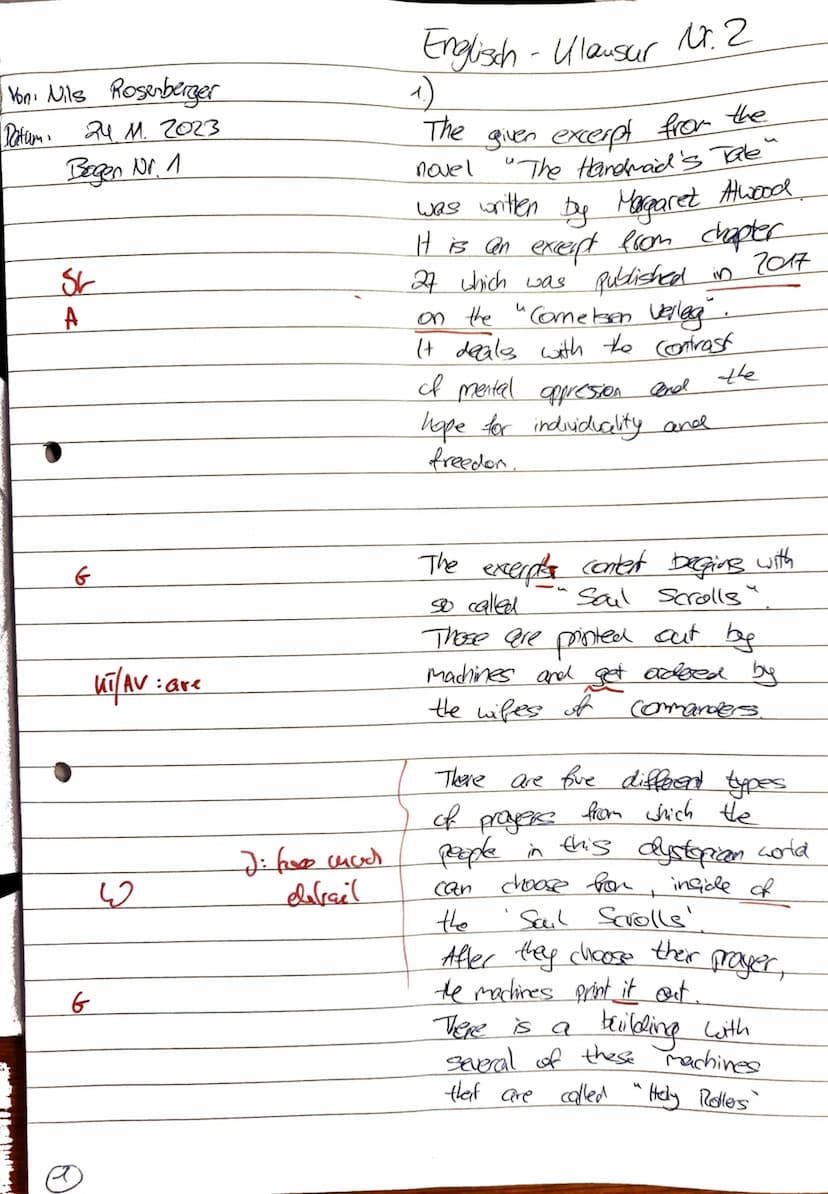 Englisch - Klausur Nr. 2
Von: Nils Rosenberger
1.)
Datum: 24.11.2023
The given excerpt from the
Bogen Nr. 1
novel "The Handmaid's Tale"
was written by Margaret Atwood.
It is an excerpt from chapter
Sb
27 which was published in 2017
A
on the "Cornelsen Verlag".
It deals with the contrast
of mental oppresion and the
hope for individuality and
freedom.
G
The excerpts content begins with
so called "Soul Scrolls".
Those are printed out by
KI/AV: are
machines and get ordered by
the wifes of commanders.
There are five different types
of prayers from which the
J: too much
people in this dystopian world
W
detail
can choose from, inside of
the 'Soul Scrolls'.
After they choose their prayer,
G
the machines print it out.
There is a building with
several of these machines
that are called "Holy Rollers"
1